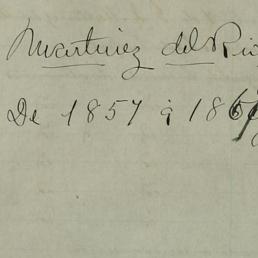 Martinez del Rio
De 1857 á 186